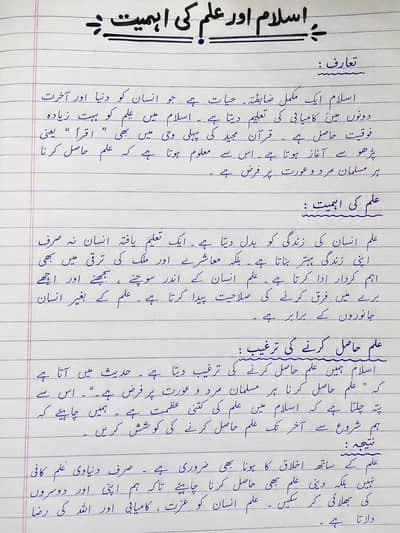 اسلام اور علم کی اہمیت
تعارف :
اسلام ایک مکمل ضابطہ۔ حیات ہے جو انسان کو دنیا اور آخرت
دونوں میں کامیابی کی تعلیم دیتا ہے۔ اسلام میں علم کو بہت زیادہ
فوقیت حاصل ہے ۔ قرآن مجید کی پہلی وحی میں بھی " اقرأ " یعنی
پڑھو سے آغاز ہوتا ہے۔ اس سے معلوم ہوتا ہے کہ علم حاصل کرنا
ہر مسلمان مرد و عورت پر فرض ہے ۔
علم کی اہمیت :
علم انسان کی زندگی کو بدل دیتا ہے۔ ایک تعلیم یافتہ انسان نہ صرف
اپنی زندگی بہتر بناتا ہے۔ بلکہ معاشرے اور ملک کی ترقی میں بھی
اہم کردار ادا کرتا ہے۔ علم انسان کے اندر سوچنے ، سمجھنے اور اچھے
برے میں فرق کرنے کی صلاحیت پیدا کرتا ہے۔ علم کے بغیر انسان
جانوروں کے برابر ہے ۔
علم حاصل کرنے کی ترغیب :
اسلام ہمیں علم حاصل کرنے کی ترغیب دیتا ہے ۔ حدیث میں آتا ہے
کہ " علم حاصل کرنا ہر مسلمان مرد و عورت پر فرض ہے۔" ۔ اس سے
پتہ چلتا ہے کہ اسلام میں علم کی کتنی عظمت ہے ۔ ہمیں چاہیئے کہ
ہم شروع سے آخر تک علم حاصل کرنے کی کوشش کریں ۔
نتیجہ :
علم کے ساتھ اخلاق کا ہونا بھی ضروری ہے ۔ صرف دنیاوی علم کافی
نہیں بلکہ دینی علم بھی حاصل کرنا چاہیئے تاکہ ہم اپنی اور دوسروں
کی بھلائی کر سکیں ۔ علم انسان کو عزت ، کامیابی اور اللہ کی رضا
دلاتا ہے ۔